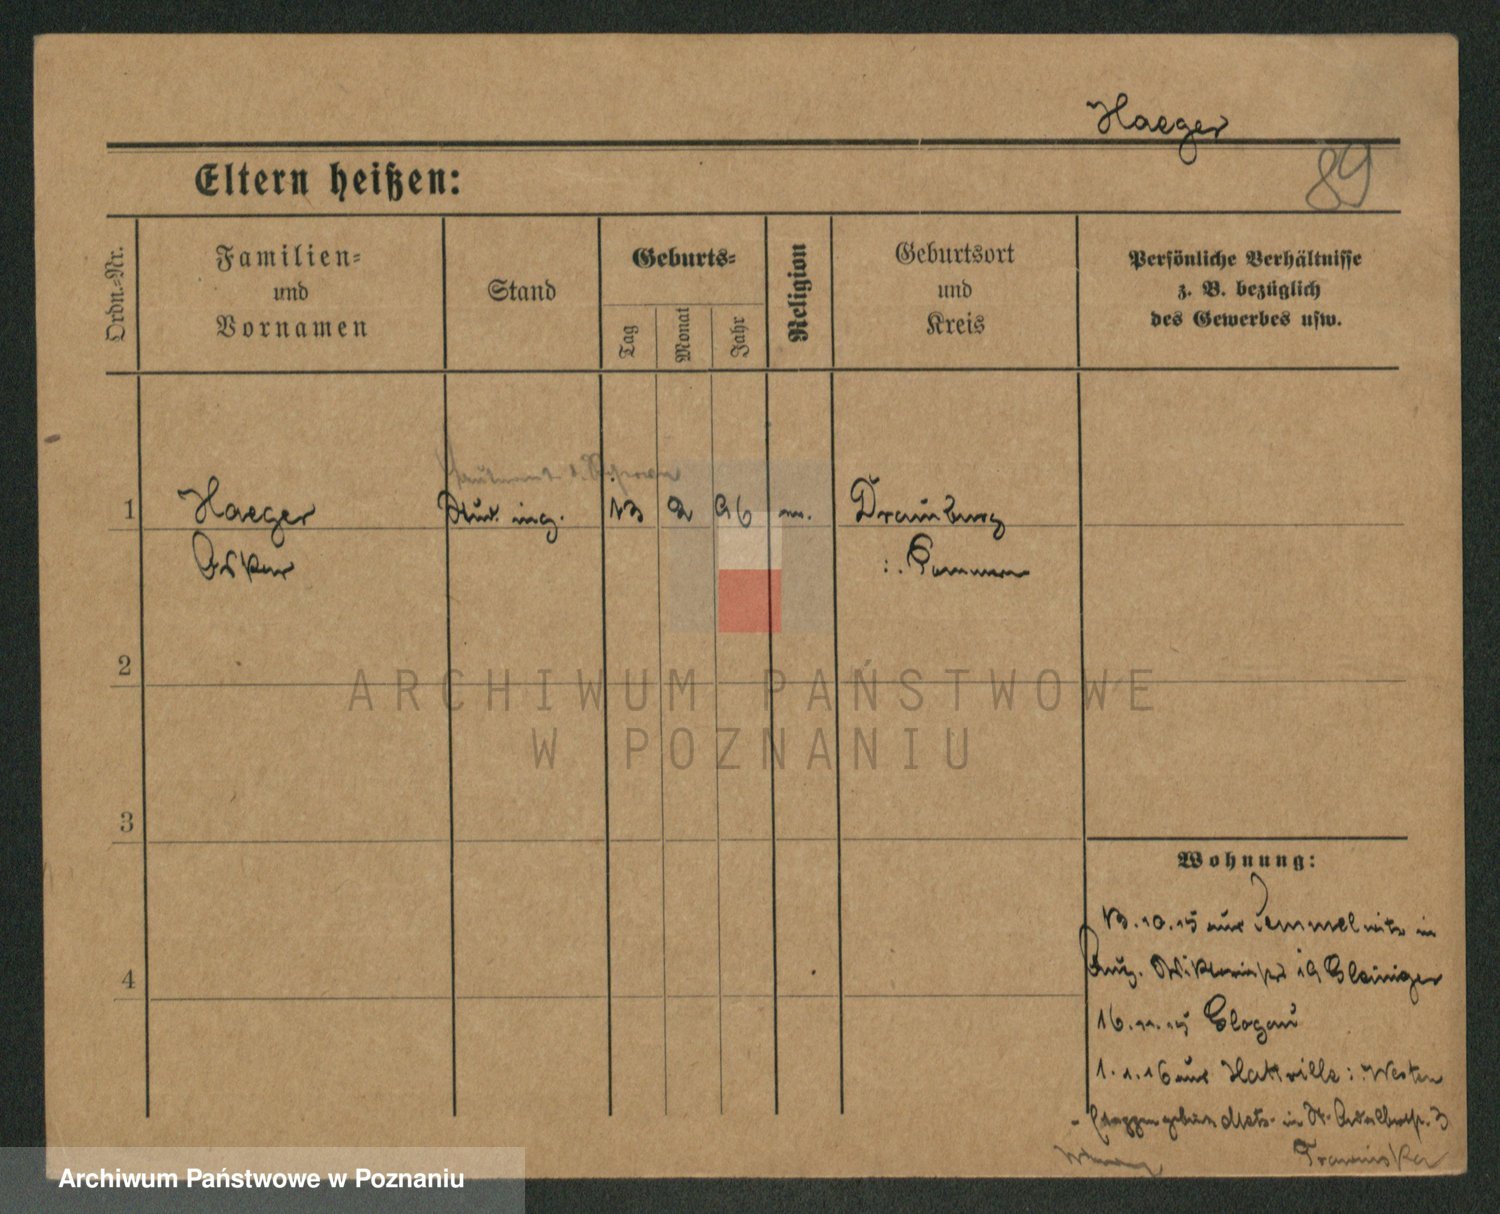 Haeger
89
Eltern heißen:
Ordn.-Nr.
Familien-
und
Vornamen
Stand
Geburts-
Tag
Monat
Jahr
Religion
Geburtsort
und
Kreis
Persönliche Verhältnisse
z. B. bezüglich
des Gewerbes usw.
1
Haeger
Oskar
Stud. ing.
13
2
96
Dramburg
i. Pommern
2
ARCHIWUM PAŃSTWOWE
W POZNANIU
3
Wohnung:
4
13.10.15 aus in
19 Gleiniger
16.11.15 Glogau
1.1.16 aus
in St. 3
Franziska
Archiwum Państwowe w Poznaniu